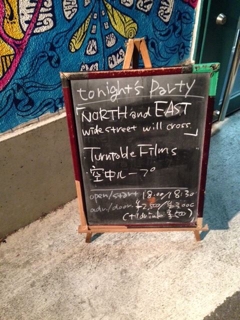 tonight's Party
「NORTH and EAST
wide street will cross.」
Turntable Films
空中ループ
open/start 18:00/18:30
adv/door ¥2,500/¥3,000
(+1drink ¥500)